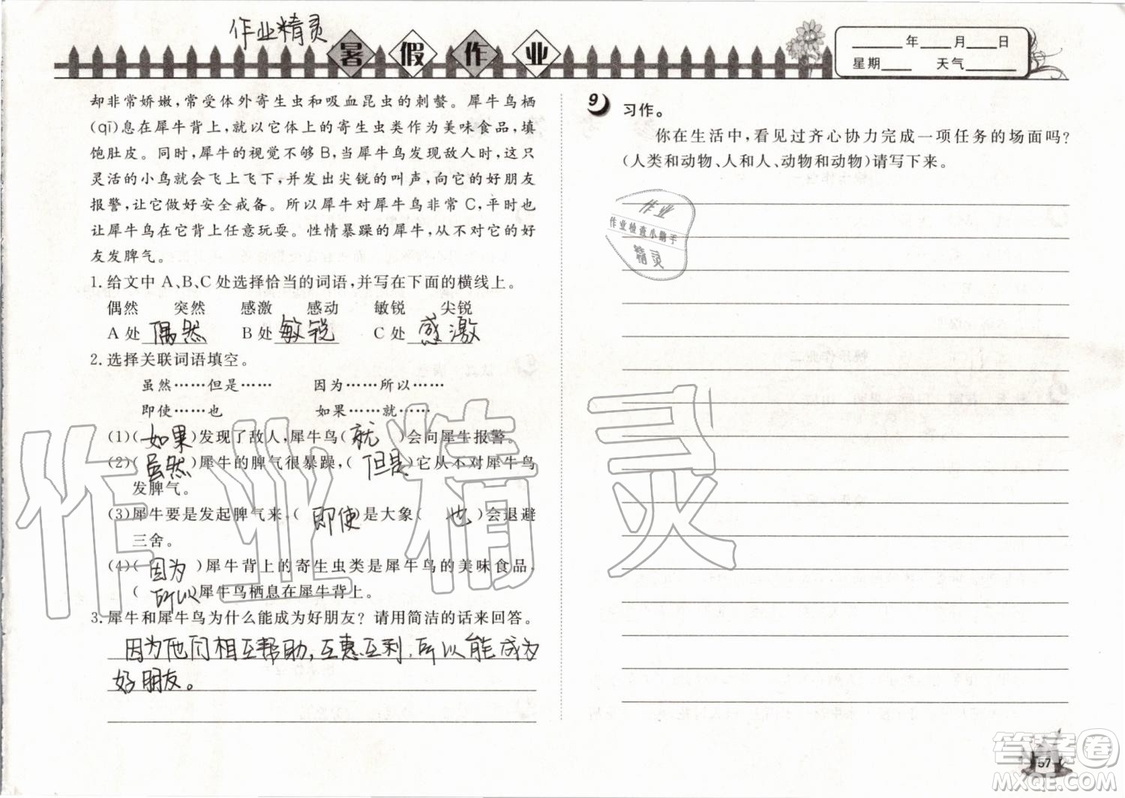 作业精灵
暑假作业
____年____月____日
星期____ 天气____
却非常娇嫩，常受体外寄生虫和吸血昆虫的刺螫。犀牛鸟栖
(qī)息在犀牛背上，就以它体上的寄生虫类作为美味食品，填
饱肚皮。同时，犀牛的视觉不够 B，当犀牛鸟发现了敌人时，这只
灵活的小鸟就会飞上飞下，并发出尖锐的叫声，向它的好朋友
报警，让它做好安全戒备。所以犀牛对犀牛鸟非常 C，平时也
让犀牛鸟在它背上任意玩耍。性情暴躁的犀牛，从不对它的好
友发脾气。
1.给文中 A、B、C 处选择恰当的词语，并写在下面的横线上。
偶然 突然 感激 感动 敏锐 尖锐
A 处 偶然 B 处 敏锐 C 处 感激
2.选择关联词语填空。
虽然……但是…… 因为……所以……
即使……也 如果……就……
(1)(如果)发现了敌人，犀牛鸟(就)会向犀牛报警。
(2)(虽然)犀牛的脾气很暴躁，(但是)它从不对犀牛鸟
发脾气。
(3)犀牛要是发起脾气来，(即使)是大象(也)会退避
三舍。
(4)(因为)犀牛背上的寄生虫类是犀牛鸟的美味食品，
(所以)犀牛鸟栖息在犀牛背上。
3.犀牛和犀牛鸟为什么能成为好朋友？请用简洁的话来回答。
因为他们相互帮助，互惠互利，所以能成为
好朋友。
9 习作。
你在生活中，看见过齐心协力完成一项任务的场面吗？
(人类和动物、人和人、动物和动物)请写下来。
作业
作业检查小帮手
精灵
作业精灵
答案卷
MXQE.COM
57